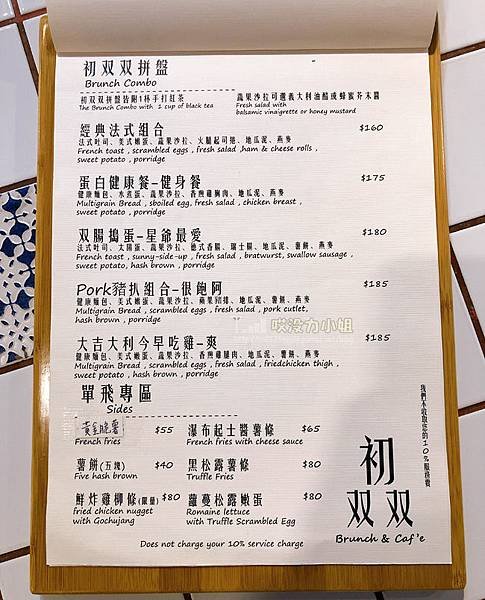 初双双拼盤
Brunch Combo
初双双拼盤皆附1杯手打紅茶
The Brunch Combo with 1 cup of black tea
蔬果沙拉可選義大利油醋或蜂蜜芥末醬
Fresh salad with
balsamic vinaigrette or honey mustard
經典法式組合 $160
法式吐司、美式嫩蛋、蔬果沙拉、火腿起司捲、地瓜泥、燕麥
French toast , scrambled eggs , fresh salad ,ham & cheese rolls ,
sweet potato , porridge
蛋白健康餐-健身餐 $175
健康麵包、水煮蛋、蔬果沙拉、香煎雞胸肉、地瓜泥、燕麥
Multigrain Bread , sboiled egg, fresh salad , chicken breast ,
sweet potato , porridge
双腸搗蛋-星爺最愛 $180
法式吐司、太陽蛋、蔬果沙拉、德式香腸、瑞士腸、地瓜泥、薯餅、燕麥
French toast , sunny-side-up , fresh salad , bratwurst, swallow sausage ,
sweet potato , hash brown , porridge
Pork豬扒組合-很飽阿 $185
健康麵包、美式嫩蛋、蔬果沙拉、蘋果豬排、地瓜泥、薯餅、燕麥
Multigrain Bread , scrambled eggs , fresh salad , pork cutlet,
hash brown , porridge
哎没力小姐
大吉大利今早吃雞-爽 $185
健康麵包、美式嫩蛋、蔬果沙拉、香煎雞腿肉、地瓜泥、薯餅、燕麥
Multigrain Bread , scrambled eggs , fresh salad , friedchicken thigh ,
sweet potato , hash brown , porridge
單飛專區
Sides
黃金脆薯 $55
French fries
瀑布起士醬薯條 $65
French fries with cheese sauce
薯餅(五塊) $40
Five hash brown
黑松露薯條 $80
Truffle Fries
鮮炸雞柳條(限量) $80
fried chicken nugget
with Gochujang
蘿蔓松露嫩蛋 $80
Romaine lettuce
with Truffle Scrambled Egg
Does not charge your 10% service charge
我們不收取您的10%服務費
初
双双
Brunch & Caf'e